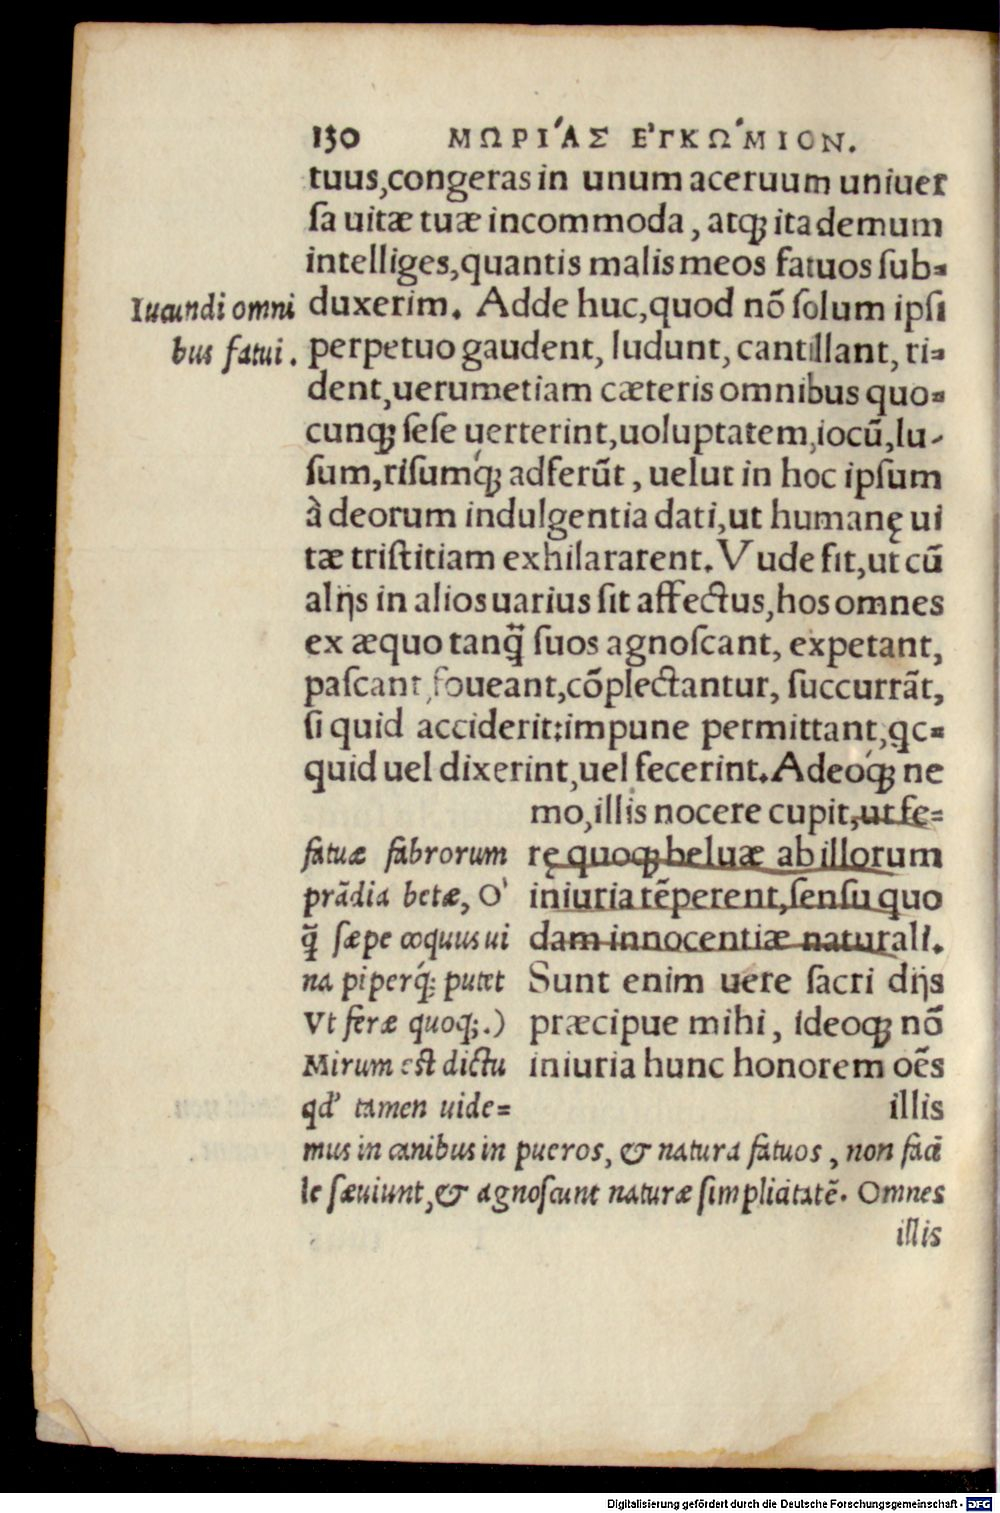 130 ΜΩΡΙΆΣ Ε᾿ΓΚΩ´ΜΙΟΝ.
tuus,congeras in unum aceruum uniuer
ſa uitæ tuæ incommoda, atqꝫ ita demum
intelliges,quantis malis meos fatuos ſub-
duxerim. Adde huc,quod nõ ſolum ipſi
perpetuo gaudent, ludunt, cantillant, ri-
dent,uerumetiam cæteris omnibus quo-
cunqꝫ ſeſe uerterint,uoluptatem,iocũ,lu-
ſum,riſumq́ꝫ adferũt, uelut in hoc ipſum
à deorum indulgentia dati,ut humanę ui
tæ triſtitiam exhilararent. Vude fit,ut cũ
alijs in alios uarius ſit affectus,hos omnes
ex æquo tanq̃ ſuos agnoſcant, expetant,
paſcant,foueant,cõplectantur, ſuccurrãt,
ſi quid acciderit:impune permittant,qc-
quid uel dixerint,uel fecerint.Adeoq́ꝫ ne
mo,illis nocere cupit,ut fe-
rę quoqꝫ beluæ ab illorum
iniuria tẽperent,ſenſu quo
dam innocentiæ naturali.
Sunt enim uere ſacri dijs
præcipue mihi, ideoqꝫ nõ
iniuria hunc honorem oẽs
illis
Iucundi omni
bus fatui.
fatuæ fabrorum
prãdia betæ, O'
q̃ ſæpe coquus ui
na piperq́; putet
Vt feræ quoq;.)
Mirum eſt dictu
qd' tamen uide=
mus in canibus in pueros, & natura fatuos, non faci
le ſæuiunt,& agnoſcunt naturæ ſimplicitatẽ. Omnes
illis
Digitalisierung gefördert durch die Deutsche Forschungsgemeinschaft - DFG